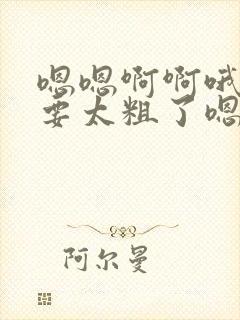 嗯嗯啊啊哦
要太粗了嗯
阿尔曼